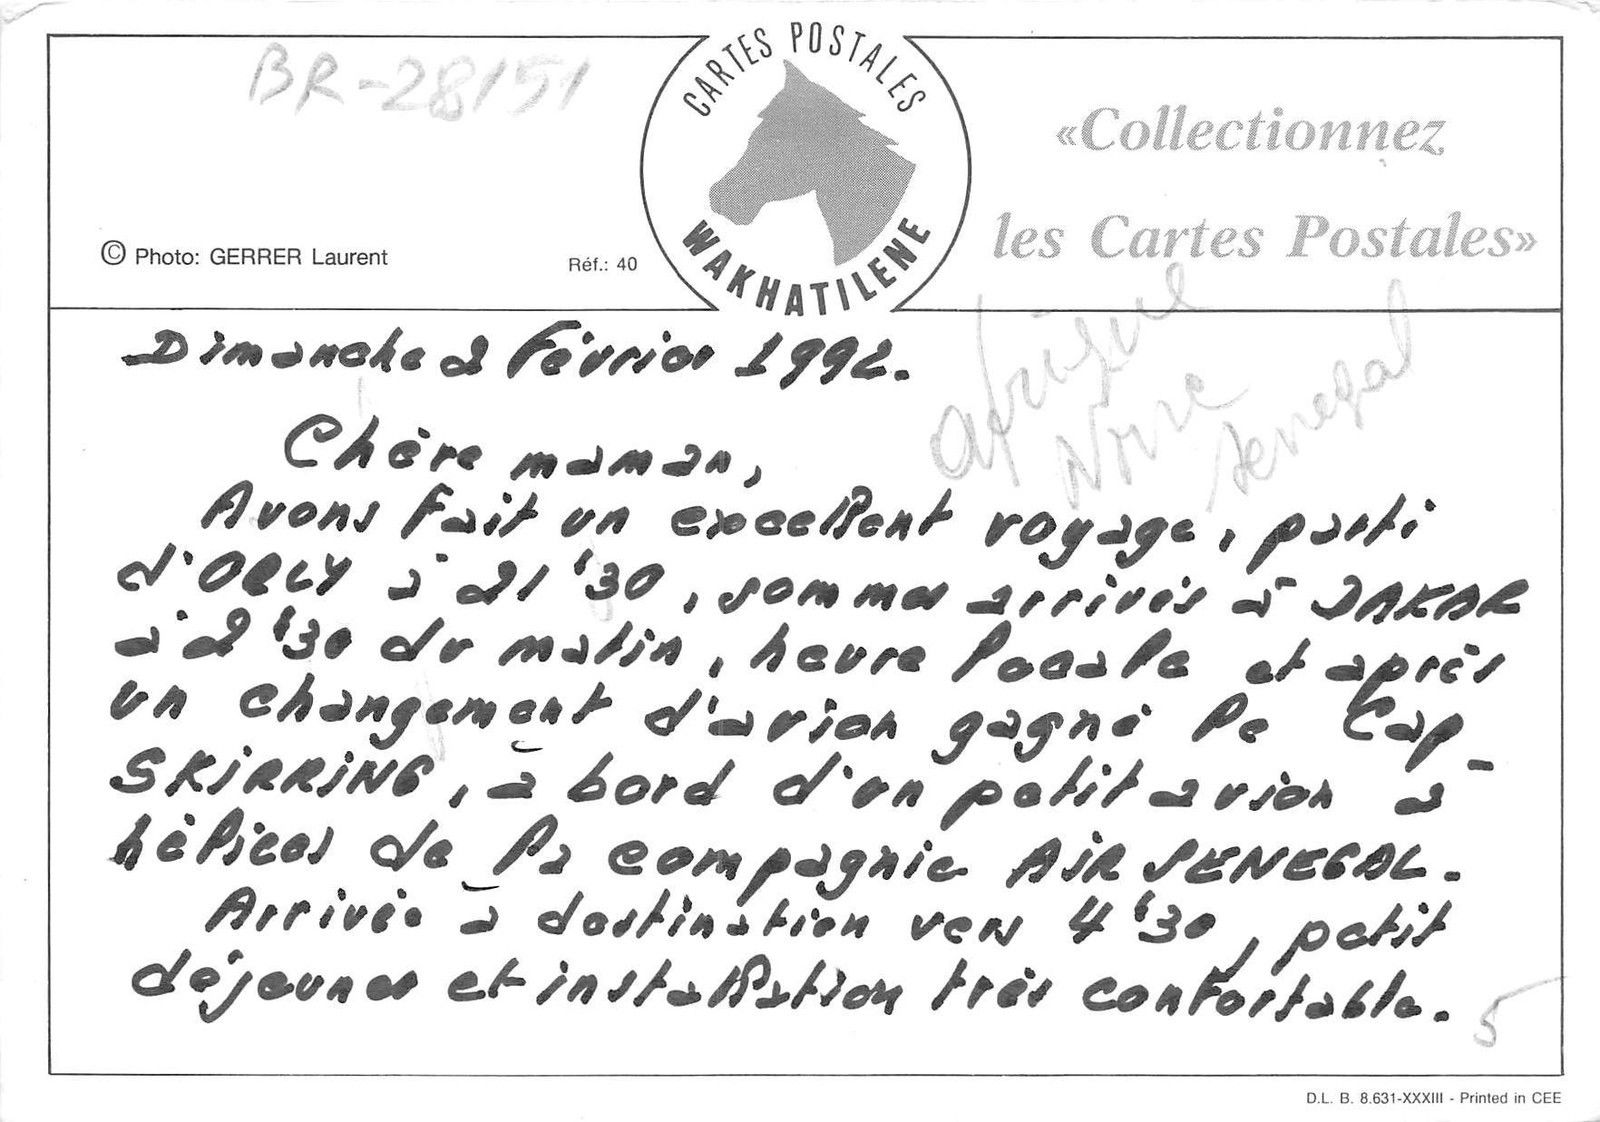 BR-28151
CARTES POSTALES
WAKHATILENE
© Photo: GERRER Laurent
Réf.: 40
«Collectionnez
les Cartes Postales»
Afrique
Noire
Senegal
Dimanche 2 Février 1992.
Chère maman,
Avons fait un excellent voyage, parti
d'ORLY à 21 '30, sommes arrivés à DAKAR
à 2 '30 du matin, heure locale et après
un changement d'avion gagné le Cap-
SKIRRING, à bord d'un petit avion à
hélices de la compagnie AIR SENEGAL.
Arrivée à destination vers 4 '30, petit
déjeuner et installation très confortable.
5
D.L. B. 8.631-XXXIII - Printed in CEE